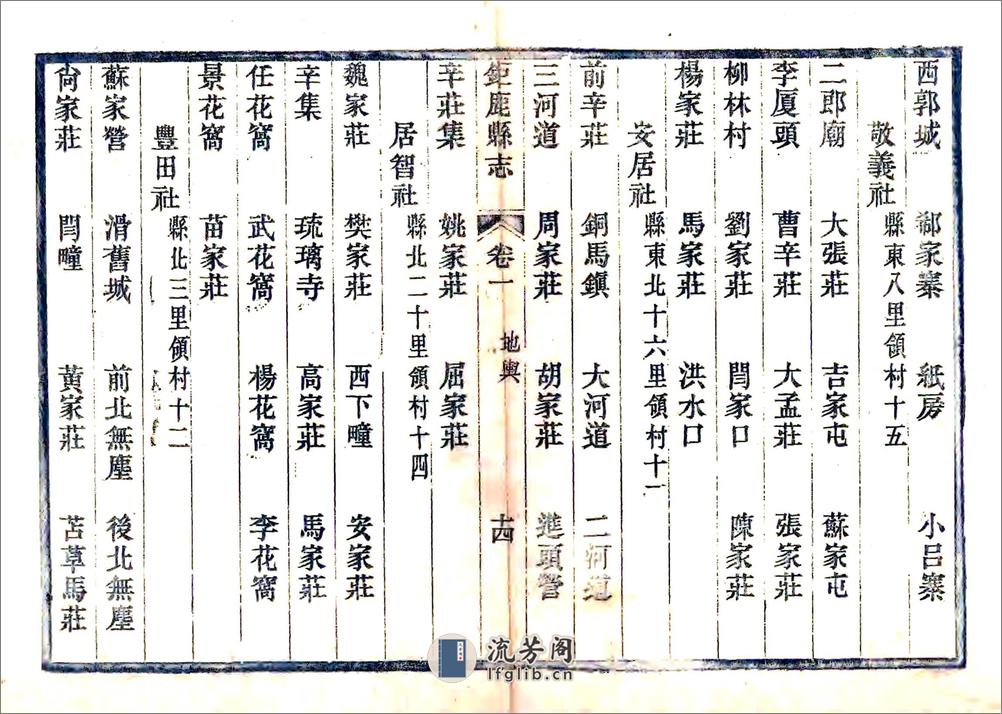 西郭城 郗家寨 紙房 小呂寨
敬義社 縣東八里領村十五
二郎廟 大張莊 吉家屯 蘇家屯
李厦頭 曹辛莊 大孟莊 張家莊
柳林村 劉家莊 閆家口 陳家莊
楊家莊 馬家莊 洪水口
安居社 縣東北十六里領村十一
前辛莊 銅馬鎮 大河道 二河道
三河道 周家莊 胡家莊 進頭營
鉅鹿縣志 卷一 地輿 十四
辛莊集 姚家莊 屈家莊
居智社 縣北二十里領村十四
魏家莊 樊家莊 西下疃 安家莊
辛集 琉璃寺 高家莊 馬家莊
任花窩 武花窩 楊花窩 李花窩
景花窩 苗家莊
豐田社 縣北三里領村十二
蘇家營 滑舊城 前北無塵 後北無塵
尙家莊 閆疃 黃家莊 苫草馬莊
流芳阁
lfglib.cn